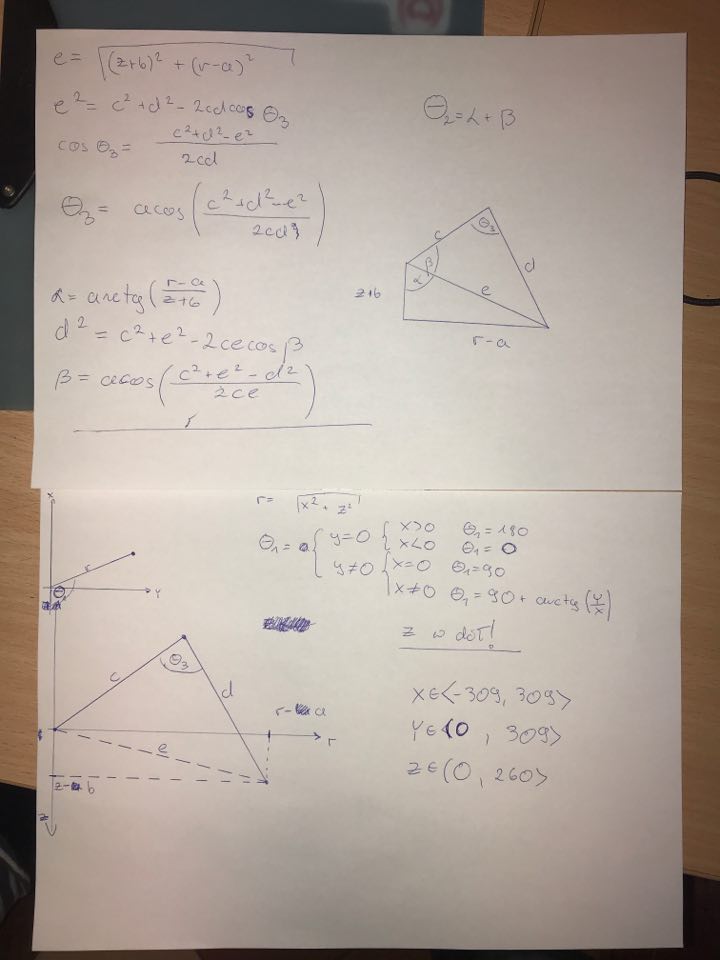 e = √((z+b)² + (r-a)²)
e² = c² + d² - 2cd cos Θ₃
cos Θ₃ = (c²+d²-e²)/(2cd)
Θ₃ = acos((c²+d²-e²)/(2cd))
α = arctg((r-a)/(z+b))
d² = c² + e² - 2ce cos β
β = acos((c²+e²-d²)/(2ce))
Θ₂ = α + β
c
Θ₃
β
α
d
e
z+b
r-a
x
r
Θ₁
Y
r = √(x² + z²)
Θ₁ = { y=0 { x>0 Θ₁=180
x<0 Θ₁=0
y≠0 { x=0 Θ₁=90
x≠0 Θ₁=90 + arctg(y/x)
z w dół!
c
Θ₃
d
r- a
r
e
z- b
z
X∈<-309, 309>
Y∈(0, 309>
Z∈(0, 260>